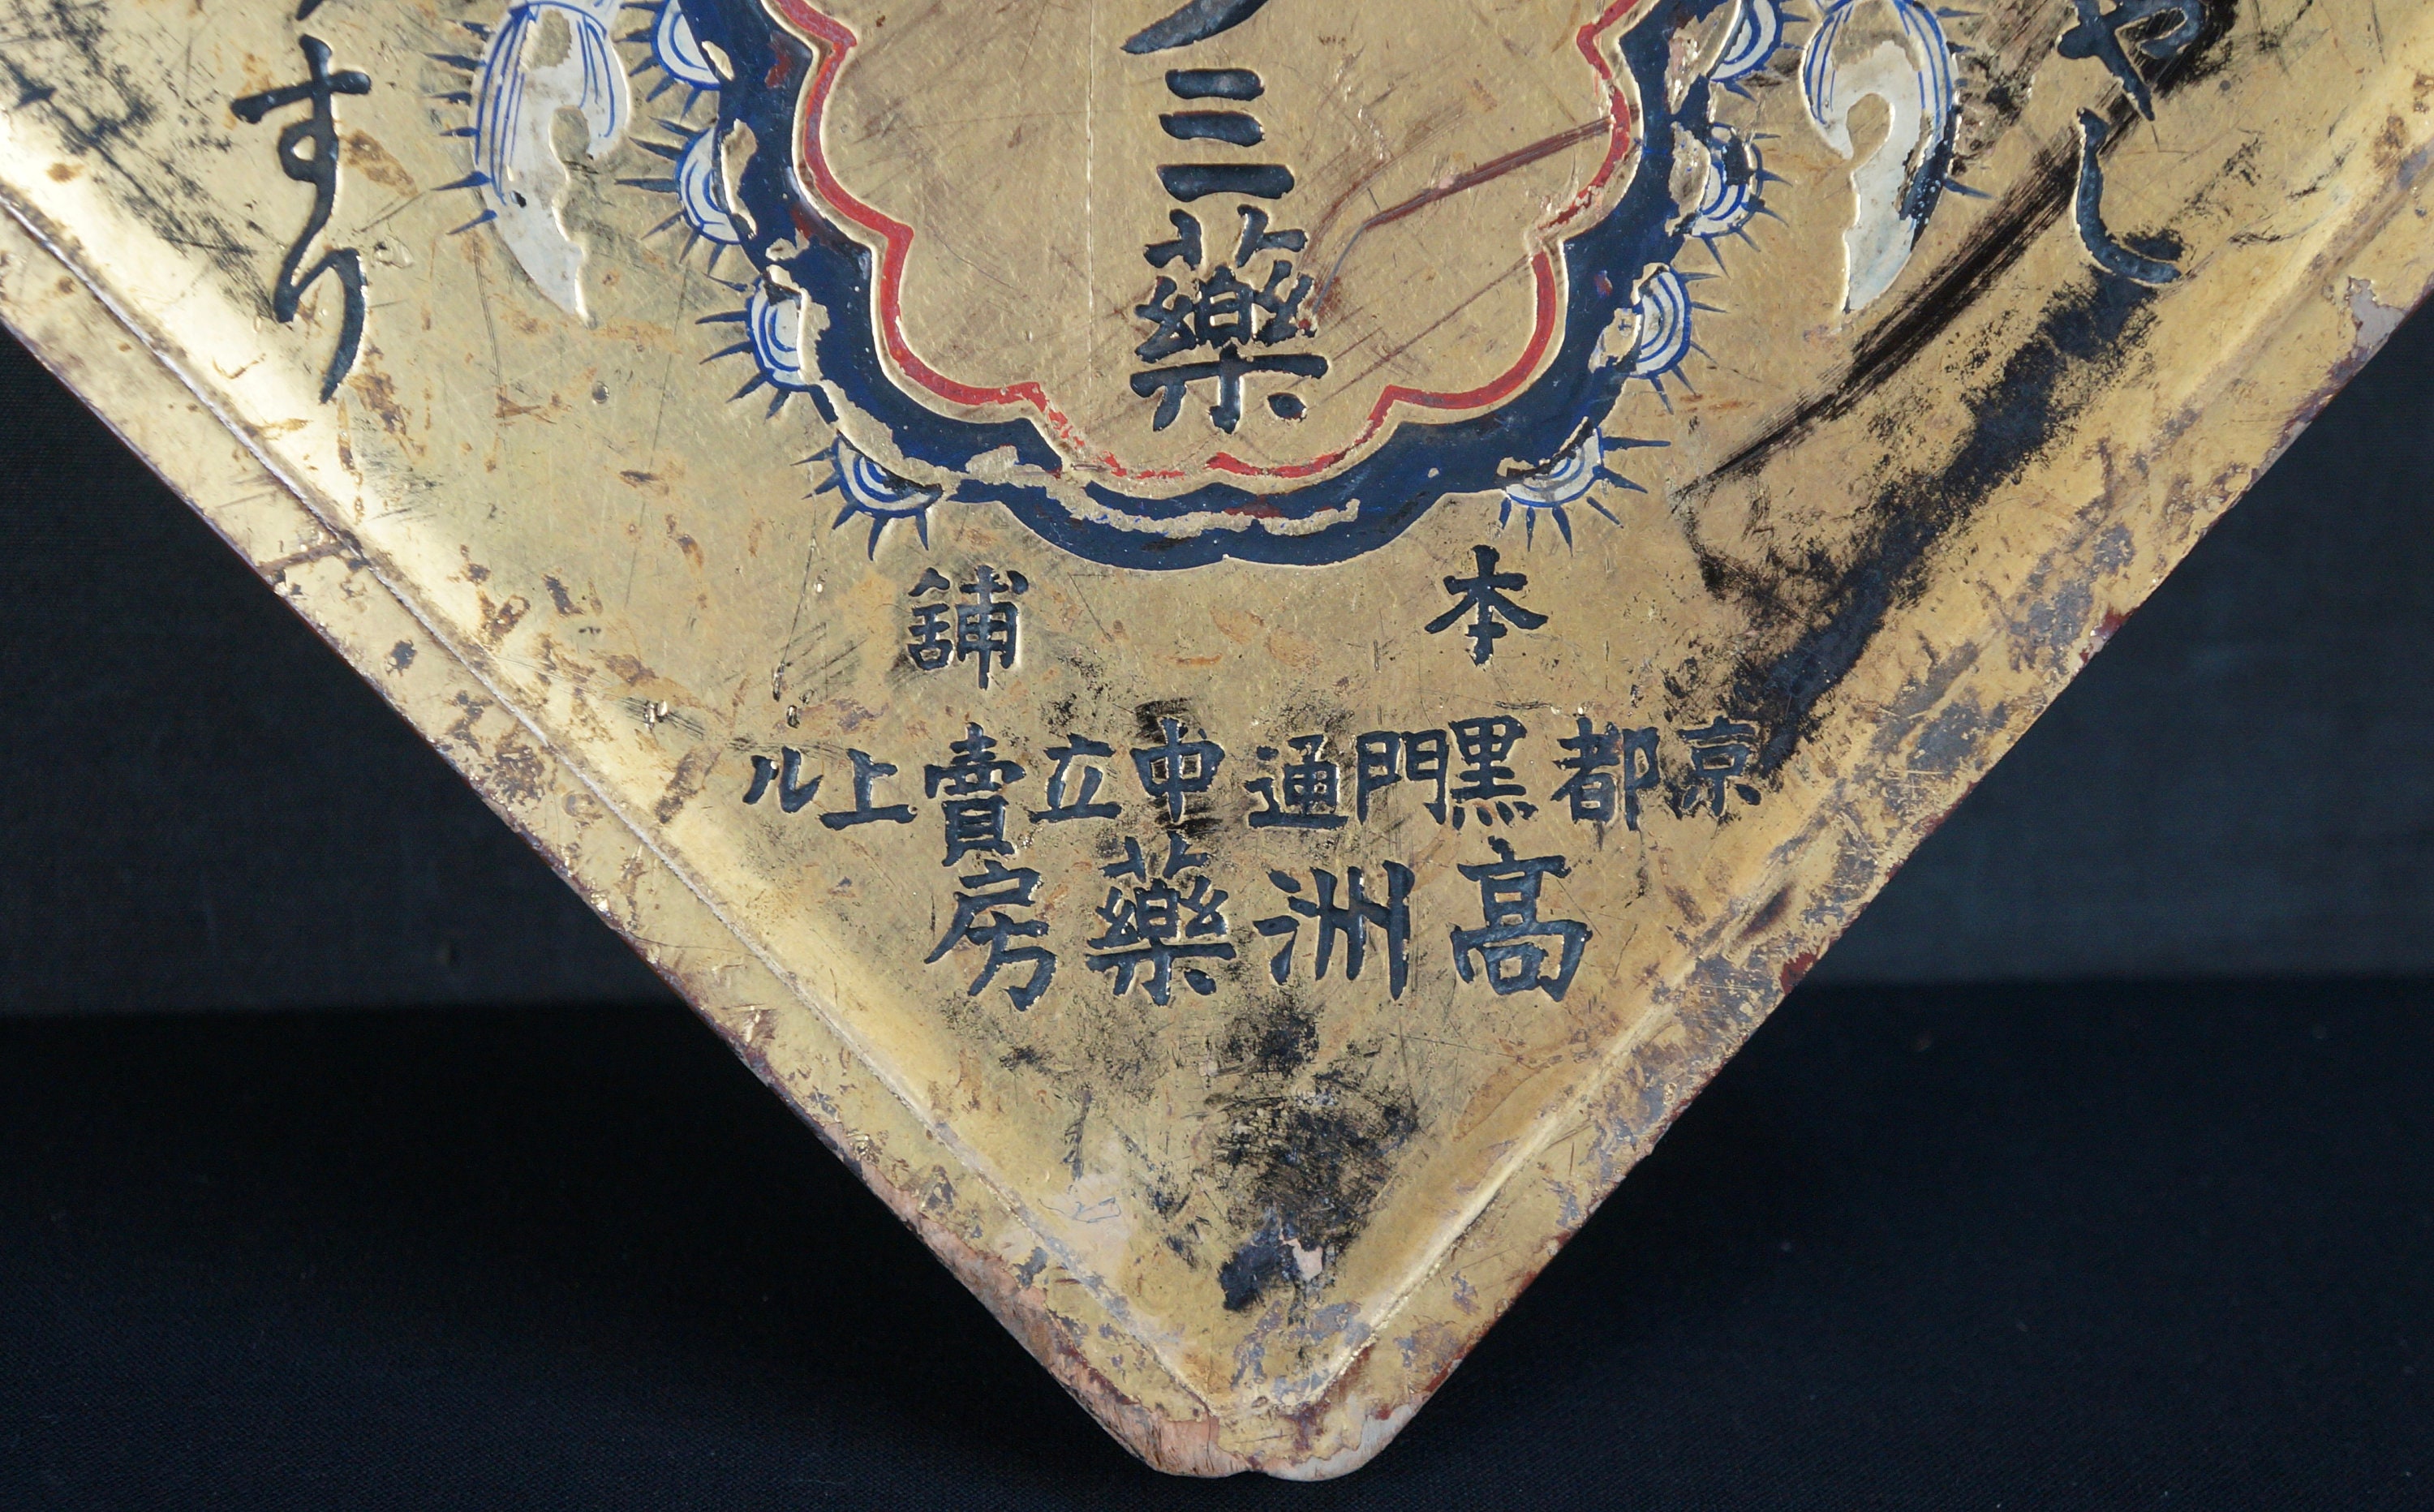 やし
三藥
すり
本舖
京都黒門通中立賣上ル
高洲藥房